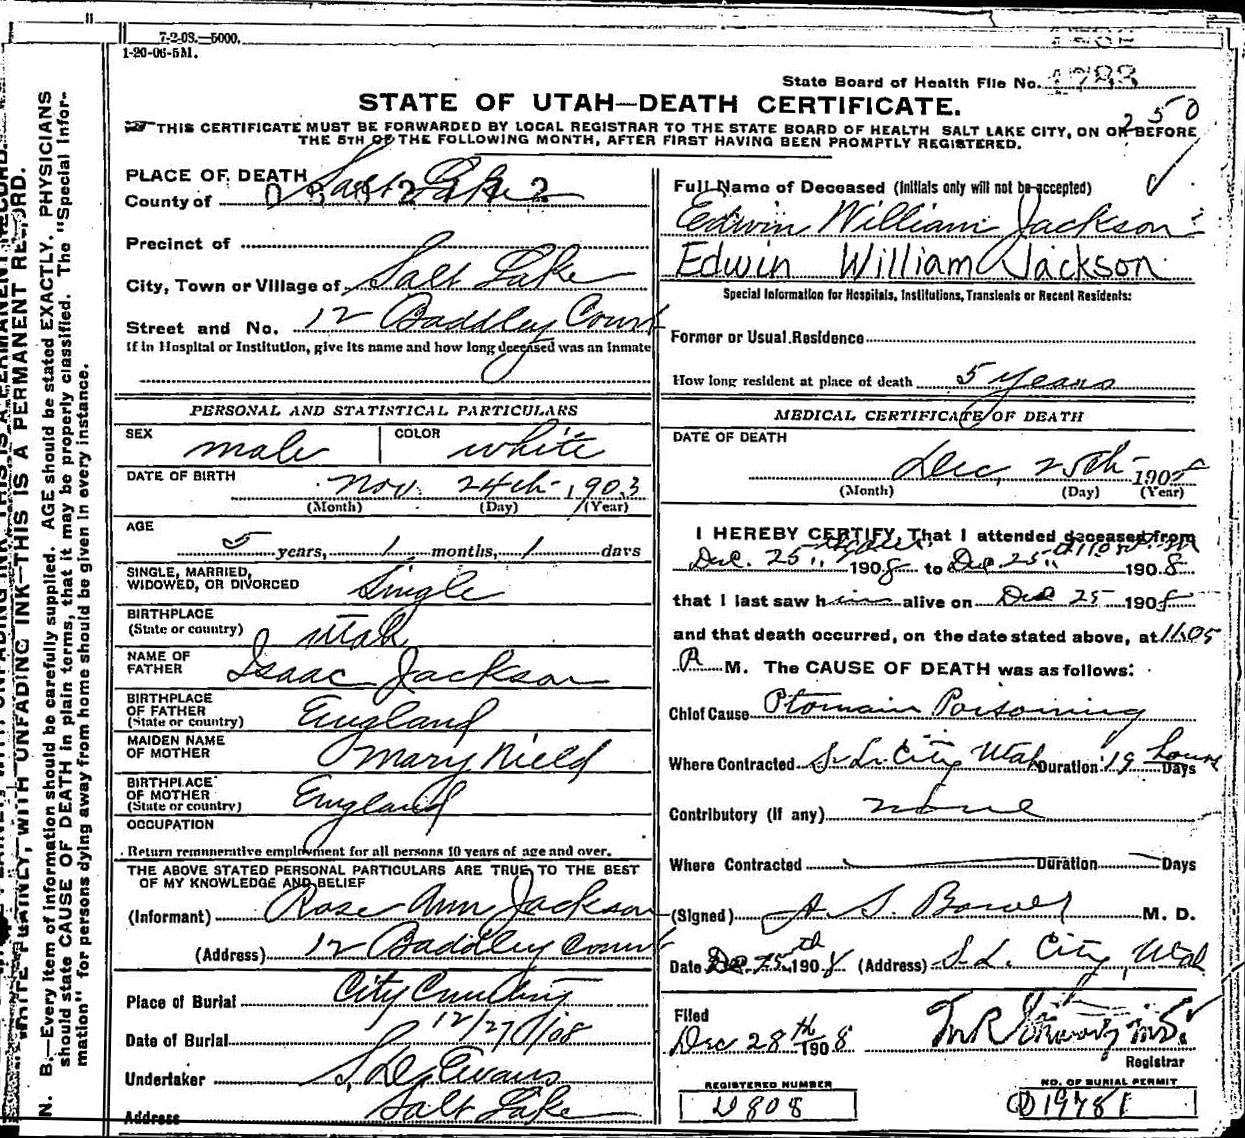 7-2-08.—5000.
1-20-06-5M.
State Board of Health File No.
STATE OF UTAH—DEATH CERTIFICATE.
250
THIS CERTIFICATE MUST BE FORWARDED BY LOCAL REGISTRAR TO THE STATE BOARD OF HEALTH SALT LAKE CITY, ON OR BEFORE
THE 5TH OF THE FOLLOWING MONTH, AFTER FIRST HAVING BEEN PROMPTLY REGISTERED.
PLACE OF DEATH
County of Salt Lake
Precinct of
City, Town or Village of Salt Lake
Street and No. 12 Baddley Court
If in Hospital or Institution, give its name and how long deceased was an inmate
PERSONAL AND STATISTICAL PARTICULARS
SEX male COLOR white
DATE OF BIRTH Nov. 24th 1903
(Month) (Day) (Year)
AGE
5 years, 1 months, 1 days
SINGLE, MARRIED,
WIDOWED, OR DIVORCED Single
BIRTHPLACE
(State or country) Utah
NAME OF
FATHER Isaac Jackson
BIRTHPLACE
OF FATHER
(State or country) England
MAIDEN NAME
OF MOTHER Mary Nield
BIRTHPLACE
OF MOTHER
(State or country) England
OCCUPATION
Return remunerative employment for all persons 10 years of age and over.
THE ABOVE STATED PERSONAL PARTICULARS ARE TRUE TO THE BEST
OF MY KNOWLEDGE AND BELIEF
(Informant) Rose Ann Jackson
(Address) 12 Baddley Court
Place of Burial City Cemetery
Date of Burial 12/27/08
Undertaker S. D. Evans
Address Salt Lake
Full Name of Deceased (Initials only will not be accepted)
Edwin William Jackson
Edwin William Jackson
Special Information for Hospitals, Institutions, Transients or Recent Residents:
Former or Usual Residence
How long resident at place of death 5 years
MEDICAL CERTIFICATE OF DEATH
DATE OF DEATH
Dec. 25th 1908
(Month) (Day) (Year)
I HEREBY CERTIFY, That I attended deceased from
Dec. 25 1908 to Dec 25th 1908
that I last saw him alive on Dec 25 1908
and that death occurred, on the date stated above, at 11.05
P. M. The CAUSE OF DEATH was as follows:
Chief Cause Ptomain Poisoning
Where Contracted S. L. City Utah Duration 19 hours Days
Contributory (if any) none
Where Contracted Duration Days
(Signed) A. S. Bower M. D.
Date Dec. 25th 1908 (Address) S. L. City, Utah
Filed
Dec 28th 1908
Registrar
REGISTERED NUMBER
D808
NO. OF BURIAL PERMIT
D19781
WRITE PLAINLY, WITH UNFADING INK—THIS IS A PERMANENT RECORD.
N. B.—Every item of information should be carefully supplied. AGE should be stated EXACTLY. PHYSICIANS
should state CAUSE OF DEATH in plain terms, that it may be properly classified. The "Special Infor-
mation" for persons dying away from home should be given in every instance.